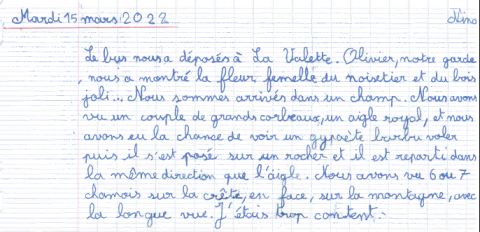 Mardi 15 mars 2022 Nino
Le bus nous a déposés à La Valette. Olivier, notre garde
, nous a montré la fleur femelle du noisetier et du bois
joli... Nous sommes arrivés dans un champ. Nous avons
vu un couple de grands corbeaux, un aigle royal, et nous
avons eu la chance de voir un gypaète barbu voler
puis il s'est posé sur un rocher et il est reparti dans
la même direction que l'aigle. Nous avons vu 6 ou 7
chamois sur la crête, en face, sur la montagne, avec
la longue vue. J'étais trop content.